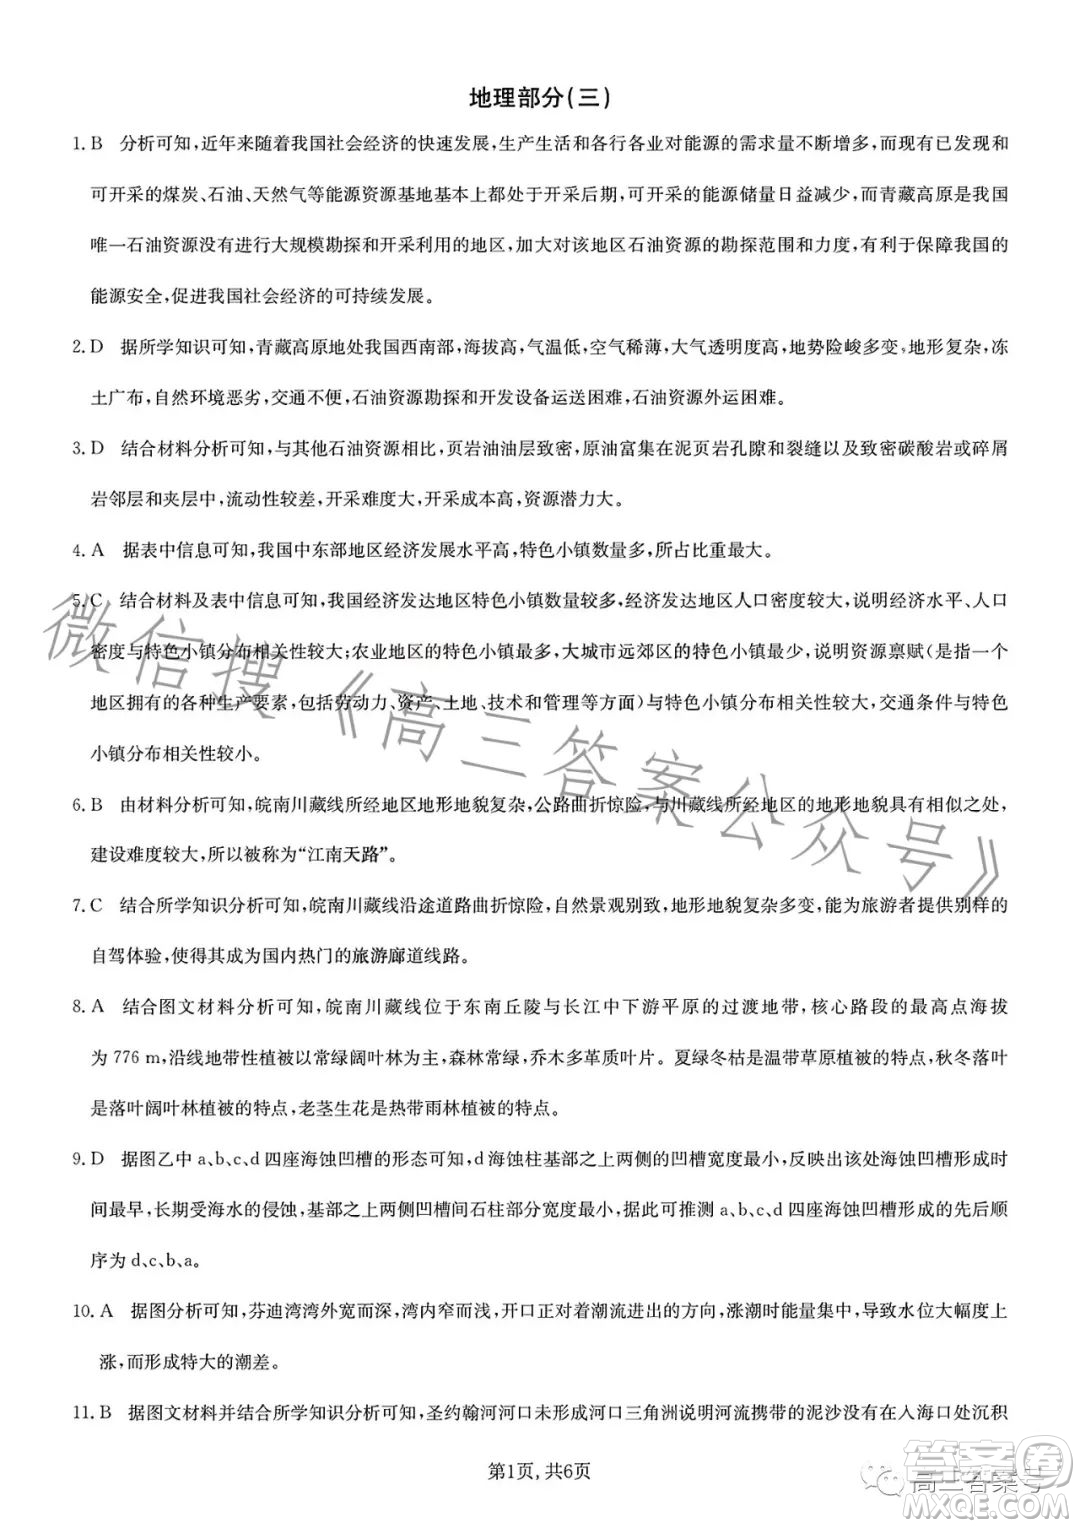 地理部分(三)
1. B 分析可知,近年来随着我国社会经济的快速发展,生产生活和各行各业对能源的需求量不断增多,而已发现和
可开采的煤炭、石油、天然气等能源资源基地基本上都处于开采后期,可开采的能源储量日益减少,而青藏高原是我国
唯一石油资源没有进行大规模勘探和开采利用的地区,加大对该地区石油资源的勘探范围和力度,有利于保障我国的
能源安全,促进我国社会经济的可持续发展。
2. D 据所学知识可知,青藏高原地处我国西南部,海拔高,气温低,空气稀薄,大气透明度高,地势险峻多变,地形复杂,冻
土广布,自然环境恶劣,交通不便,石油资源勘探和开发设备运送困难,石油资源外运困难。
3. D 结合材料分析可知,与其他石油资源相比,页岩油油层致密,原油富集在泥页岩孔隙和裂缝以及致密碳酸岩或碎屑
岩邻层和夹层中,流动性较差,开采难度大,开采成本高,资源潜力大。
4. A 据表中信息可知,我国中东部地区经济发展水平高,特色小镇数量多,所占比重最大。
5. C 结合材料及表中信息可知,我国经济发达地区特色小镇数量较多,经济发达地区人口密度较大,说明经济水平、人口
密度与特色小镇分布相关性较大;农业地区的特色小镇最多,大城市远郊区的特色小镇最少,说明资源禀赋(是指一个
地区拥有的各种生产要素,包括劳动力、资产、土地、技术和管理等方面)与特色小镇分布相关性较大,交通条件与特色
小镇分布相关性较小。
6. B 由材料分析可知,皖南川藏线所经地区地形地貌复杂,公路曲折惊险,与川藏线所经地区的地形地貌具有相似之处,
建设难度较大,所以被称为“江南天路”。
7. C 结合所学知识分析可知,皖南川藏线沿途道路曲折惊险,自然景观别致,地形地貌复杂多变,能为旅游者提供别样的
自驾体验,使得其成为国内热门的旅游廊道线路。
8. A 结合图文材料分析可知,皖南川藏线位于东南丘陵与长江中下游平原的过渡地带,核心路段的最高点海拔
为 776 m,沿线地带性植被以常绿阔叶林为主,森林常绿,乔木多革质叶片。夏绿冬枯是温带草原植被的特点,秋冬落叶
是落叶阔叶林植被的特点,老茎生花是热带雨林植被的特点。
9. D 据图乙中 a、b、c、d 四座海蚀凹槽的形态可知,d 海蚀柱基部之上两侧的凹槽宽度最小,反映出该处海蚀凹槽形成时
间最早,长期受海水的侵蚀,基部之上两侧凹槽间石柱部分宽度最小,据此可推测 a、b、c、d 四座海蚀凹槽形成的先后顺
序为 d、c、b、a。
10. A 据图分析可知,芬迪湾湾外宽而深,湾内窄而浅,开口正对着潮流进出的方向,涨潮时能量集中,导致水位大幅度上
涨,而形成特大的潮差。
11. B 据图文材料并结合所学知识分析可知,圣约翰河河口未形成河口三角洲说明河流携带的泥沙没有在入海口处沉积
第1页,共6页
微信搜《高三答案公众号》
高三答案号
答案圈
MXQE.COM